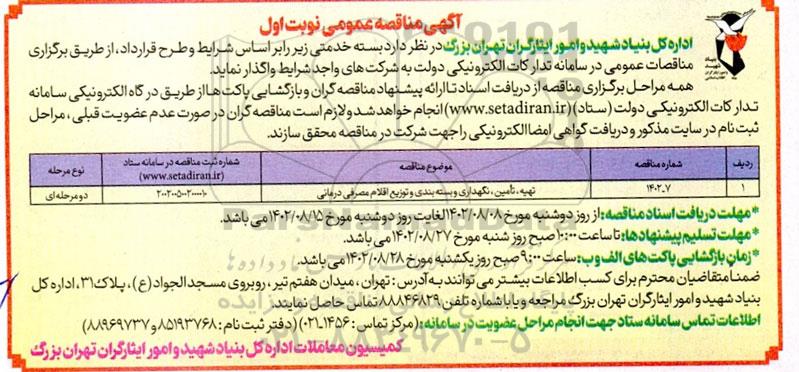 آگهی مناقصه عمومی نوبت اول
بنیاد شهید و امور ایثارگران
اداره کل بنیاد شهید و امور ایثارگران تهران بزرگ در نظر دارد بسته خدمتی زیر را بر اساس شرایط و طرح قرارداد، از طریق برگزاری
مناقصات عمومی در سامانه تدارکات الکترونیکی دولت به شرکت های واجد شرایط واگذار نماید.
همه مراحل برگزاری مناقصه از دریافت اسناد تا ارائه پیشنهاد مناقصه گران و بازگشایی پاکت ها از طریق درگاه الکترونیکی سامانه
تدارکات الکترونیکی دولت (ستاد) (www.setadiran.ir) انجام خواهد شد و لازم است مناقصه گران در صورت عدم عضویت قبلی، مراحل
ثبت نام در سایت مذکور و دریافت گواهی امضا الکترونیکی را جهت شرکت در مناقصه محقق سازند.
ردیف شماره مناقصه موضوع مناقصه شماره ثبت مناقصه در سامانه ستاد (www.setadiran.ir) نوع مرحله
۱ ۱۴۰۲-۷ تهیه، تأمین، نگهداری و بسته بندی و توزیع اقلام مصرفی درمانی دو مرحله ای
*مهلت دریافت اسناد مناقصه: از روز دوشنبه مورخ ۱۴۰۲/۰۸/۰۸ لغایت روز دوشنبه مورخ ۱۴۰۲/۰۸/۱۵ می باشد.
*مهلت تسلیم پیشنهادها: تا ساعت ۱۰:۰۰ صبح روز شنبه مورخ ۱۴۰۲/۰۸/۲۷ می باشد.
*زمان بازگشایی پاکت های الف و ب: ساعت ۹:۰۰ صبح روز یکشنبه مورخ ۱۴۰۲/۰۸/۲۸ می باشد.
ضمنا متقاضیان محترم برای کسب اطلاعات بیشتر می توانند به آدرس: تهران، میدان هفتم تیر، روبروی مسجد الجواد (ع)، پلاک ۳۱، اداره کل
بنیاد شهید و امور ایثارگران تهران بزرگ مراجعه و یا با شماره تلفن ۸۸۸۴۶۸۲۹ تماس حاصل نمایند.
اطلاعات تماس سامانه ستاد جهت انجام مراحل عضویت در سامانه: (مرکز تماس: ۱۴۵۶-۰۲۱) (دفتر ثبت نام: ۸۵۱۹۳۷۶۸ و ۸۸۹۶۹۷۳۷)
کمیسیون معاملات اداره کل بنیاد شهید و امور ایثارگران تهران بزرگ